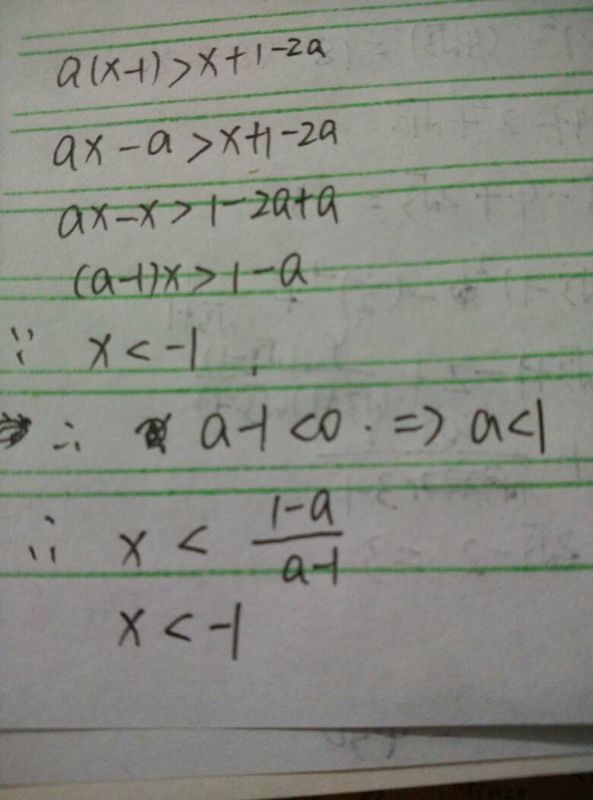 a(x-1)>x+1-2a
ax-a>x+1-2a
ax-x>1-2a+a
(a-1)x>1-a
∵ x<-1
∴ a-1<0. => a<1
∴ x < \frac{1-a}{a-1}
x<-1